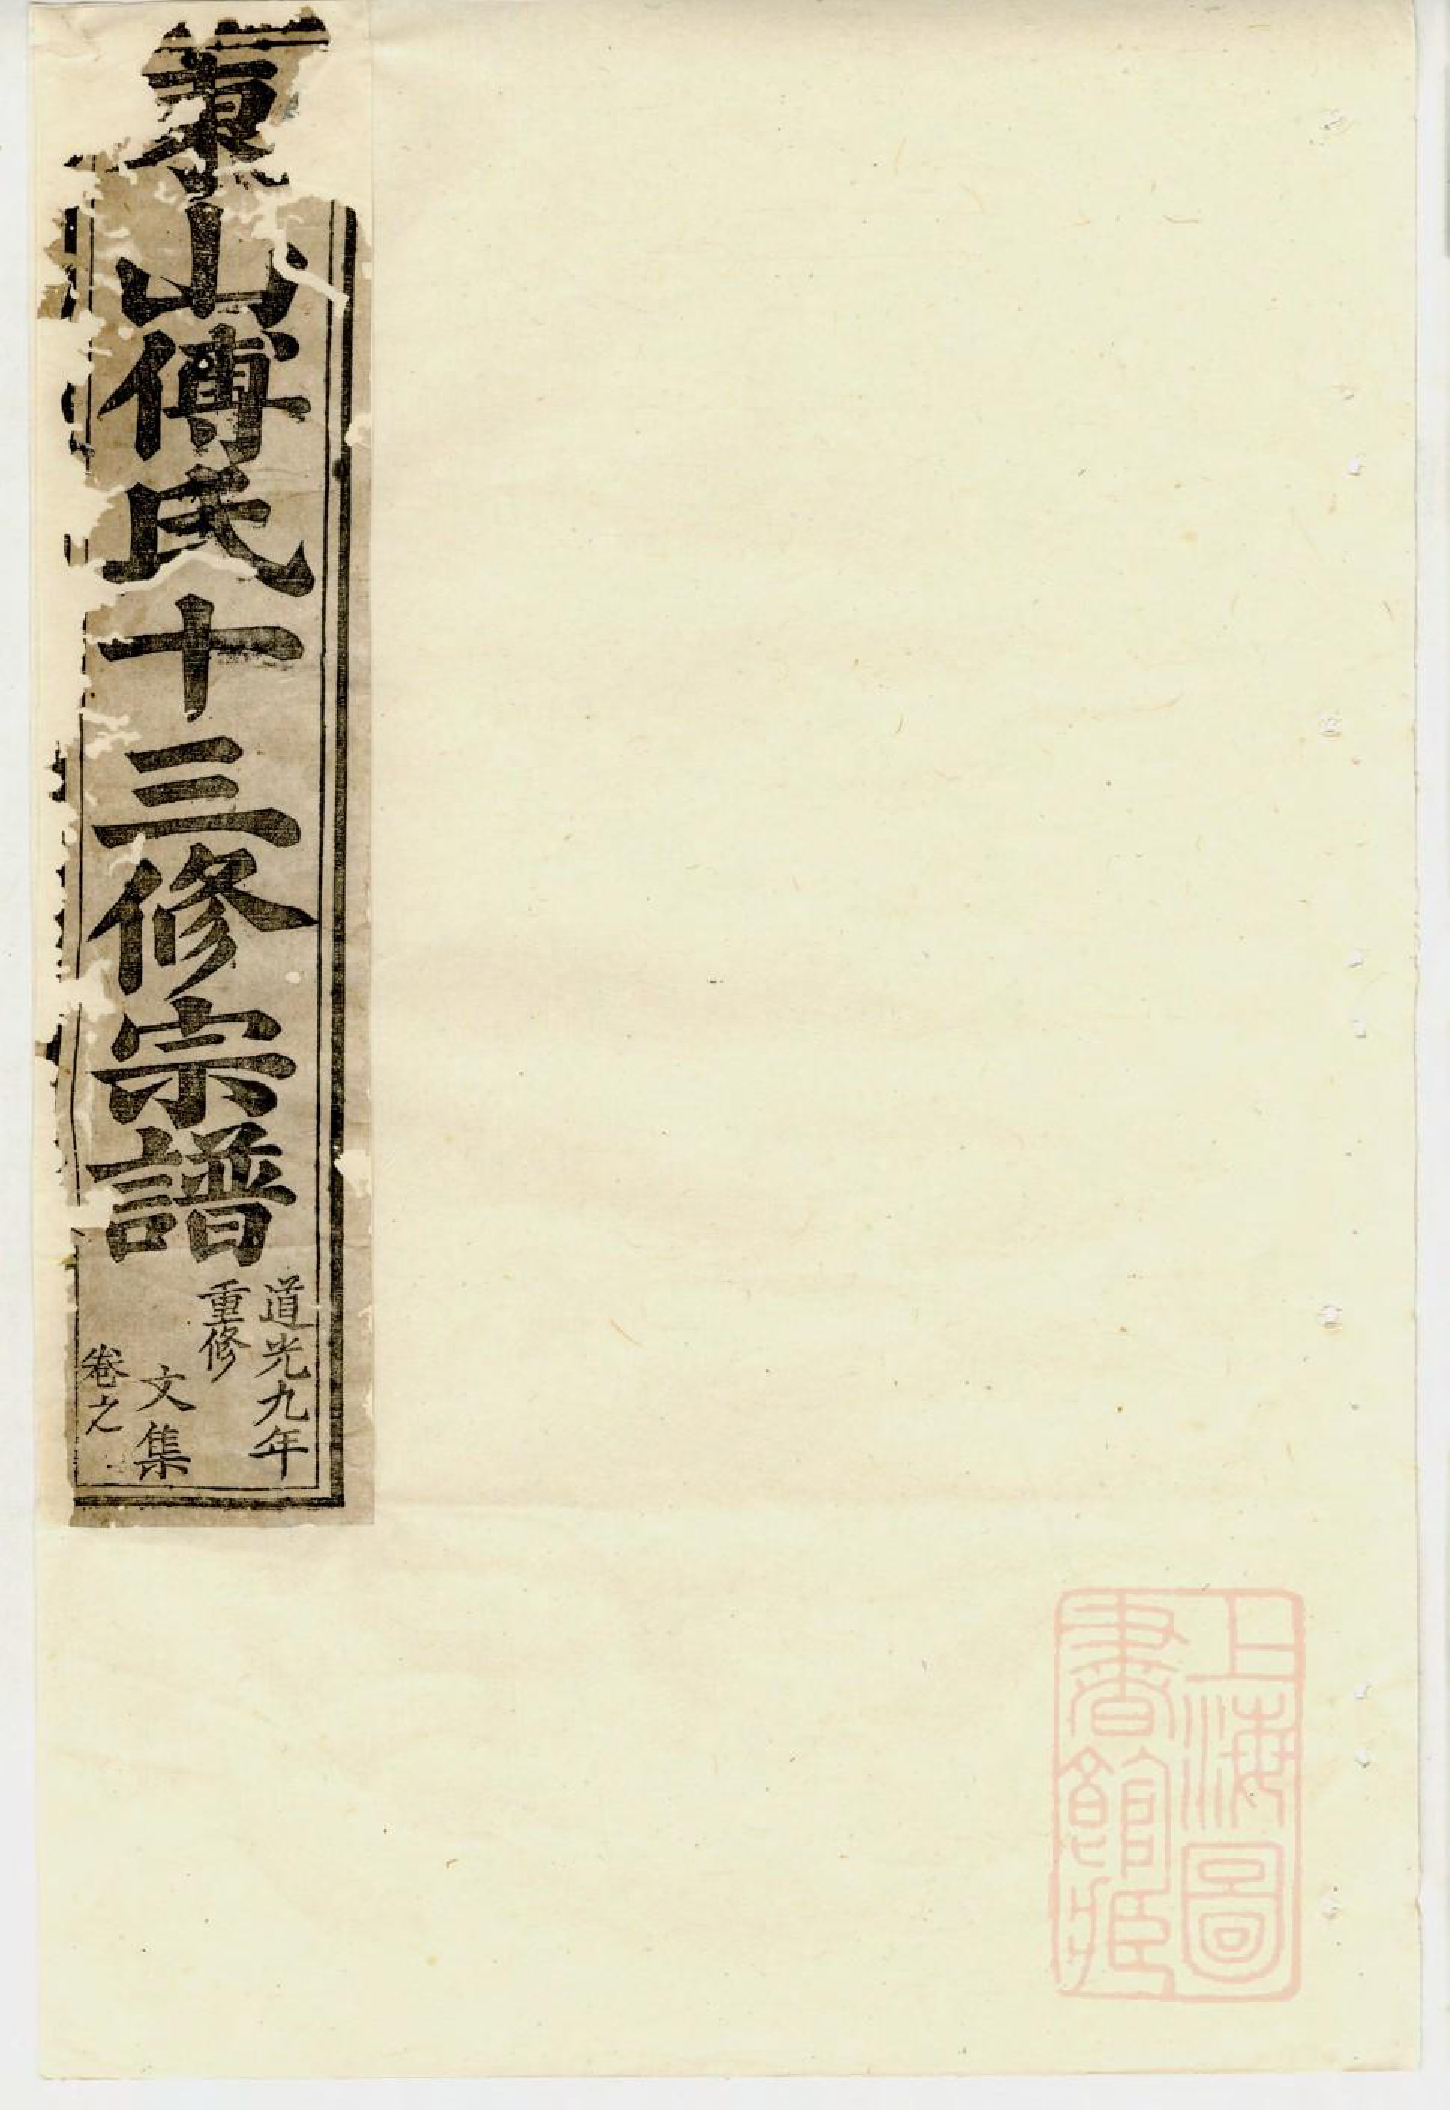 東山傅氏十三修宗譜
道光九年
重修
文集
卷之
上海圖
書館藏